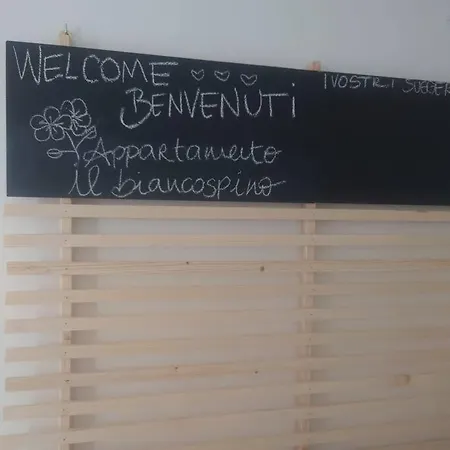 WELCOME
BENVENUTI
Appartamento
il biancospino
I VOSTRI